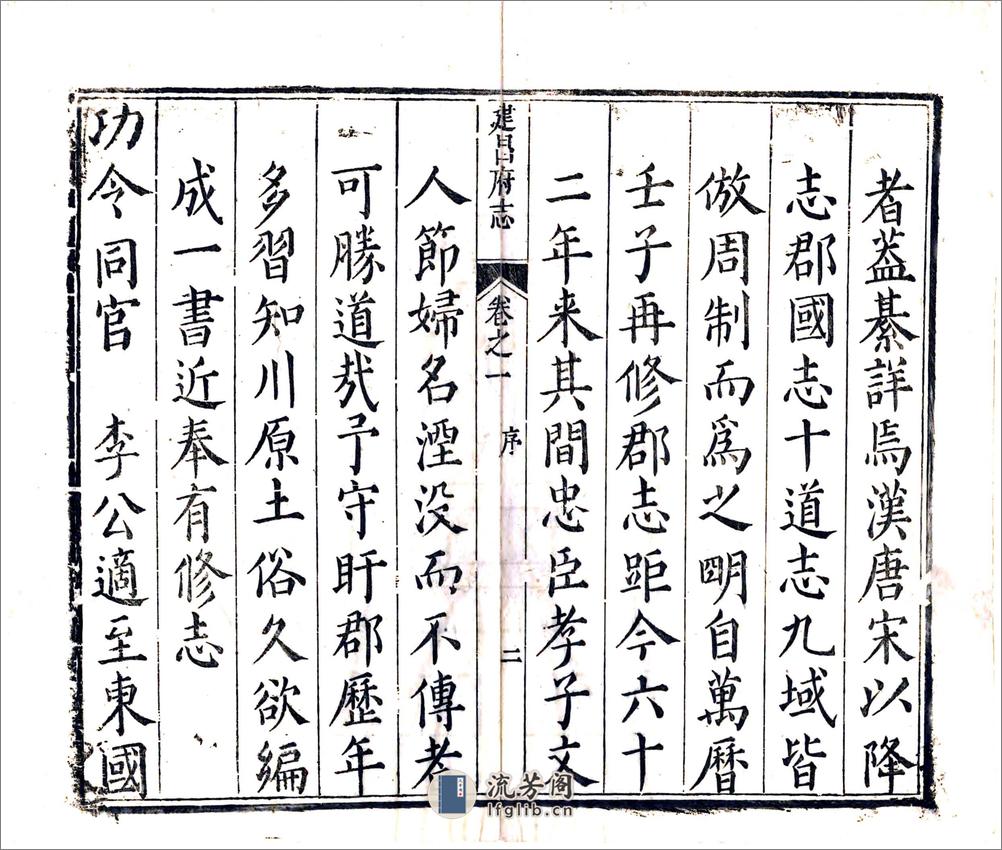 者蓋綦詳焉漢唐宋以降
志郡國志十道志九域皆
倣周制而爲之明自萬曆
壬子再修郡志距今六十
二年来其間忠臣孝子文
建昌府志 卷之一 序 二
人節婦名湮没而不傳者
可勝道㢤予守盱郡歷年
多習知川原土俗久欲編
成一書近奉有修志
功令同官 李公適至東國
流芳阁
lfglib.cn